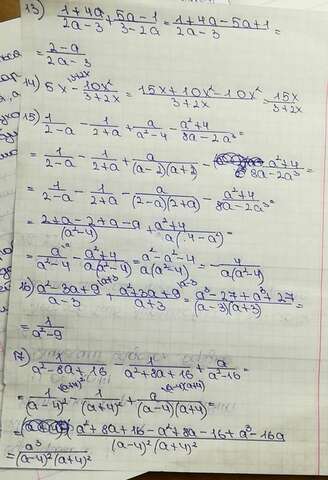 13) (1+4a)/(2a-3) + (5a-1)/(3-2a) = (1+4a-5a+1)/(2a-3) =
= (2-a)/(2a-3)
14) 5x - 10x²/(3+2x) = (15x+10x²-10x²)/(3+2x) = 15x/(3+2x)
15) 1/(2-a) - 1/(2+a) + a/(a²-4) - (a²+4)/(8a-2a³) =
= 1/(2-a) - 1/(2+a) + a/((a-2)(a+2)) - (a²+4)/(8a-2a³) =
= 1/(2-a) - 1/(2+a) - a/((2-a)(2+a)) - (a²+4)/(8a-2a³) =
= (2+a-2+a-a)/(a²-4) + (a²+4)/(a(4-a²)) =
= a/(a²-4) - (a²+4)/(a(a²-4)) = (a²-a²-4)/(a(a²-4)) = -4/(a(a²-4))
16) (a²-3a+9)/(a-3) + (a²+3a+9)/(a+3) = (a³-27+a³+27)/((a-3)(a+3)) =
= 1/(a²-9)
17) 1/(a²-8a+16) - 1/(a²+8a+16) + a/(a²-16) =
= 1/(a-4)² - 1/(a+4)² + a/((a-4)(a+4)) =
= (a²+8a+16-a²+8a-16+a³-16a)/((a-4)²(a+4)²) =
= a³/((a-4)²(a+4)²)